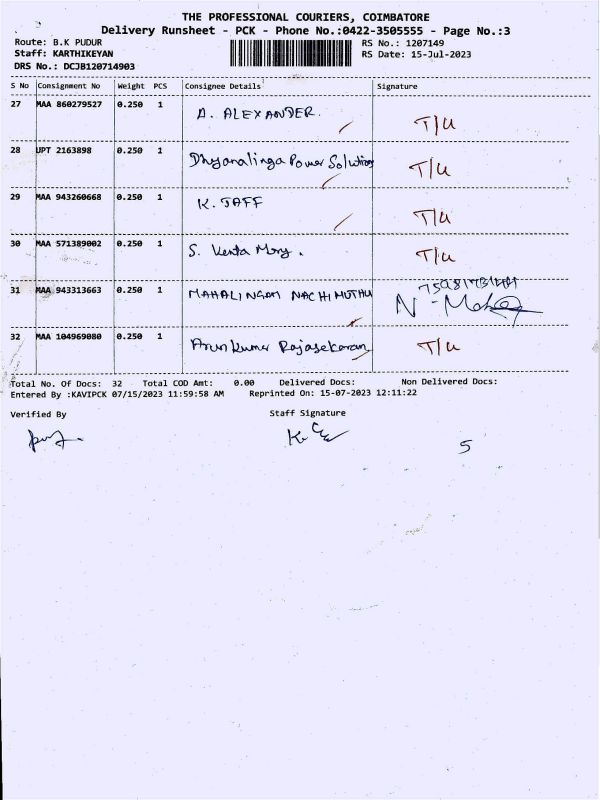 THE PROFESSIONAL COURIERS, COIMBATORE
Delivery Runsheet - PCK - Phone No.:0422-3505555 - Page No.:3
Route: B.K PUDUR RS No.: 1207149
Staff: KARTHIKEYAN RS Date: 15-Jul-2023
DRS No.: DCJB120714903
S No Consignment No Weight PCS Consignee Details Signature
27 MAA 860279527 0.250 1 A. ALEXANDER. T/U
28 UPT 2163898 0.250 1 Dhyanalinga Power Solutions T/U
29 MAA 943260668 0.250 1 K. JAFF T/U
30 MAA 571389002 0.250 1 S. T/U
31 MAA 943313663 0.250 1 MAHALINGAM NACHIMUTHU
32 MAA 104969080 0.250 1 Arun Kumar Rajasekaran T/U
Total No. Of Docs: 32 Total COD Amt: 0.00 Delivered Docs: Non Delivered Docs:
Entered By :KAVIPCK 07/15/2023 11:59:58 AM Reprinted On: 15-07-2023 12:11:22
Verified By Staff Signature
5